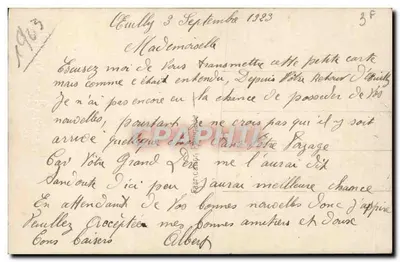 Œuilly 3 Septembre 1923
3F
1923
Mademoiselle
Excusez moi de vous transmettre cette petite carte
mais comme c'était entendu, Depuis Votre Retour d'
Je n'ai pas encore eu la chance de posséder de Vos
nouvelles, pourtant je ne crois pas qu'il y soit
arrivé quelque chose dans Votre
Car Votre Grand Père me l'aurai dit
Sans doute d'ici peu j'aurai meilleure chance
En attendant de Vos bonnes nouvelles
Veuillez Acceptée mes bonnes amitiers et douse
Bons Baisers Albert
CPAPHIL